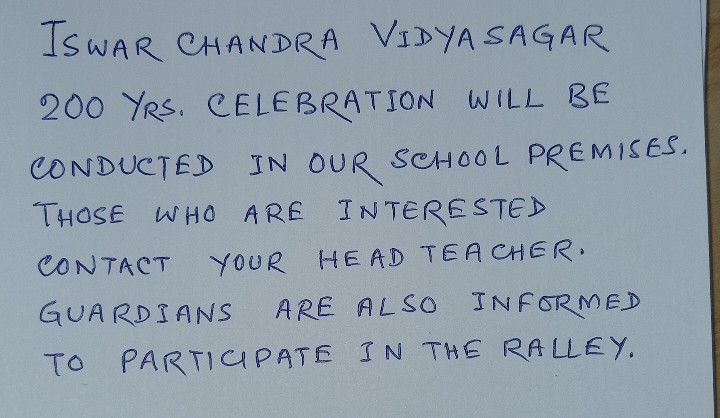 ISWAR CHANDRA VIDYASAGAR
200 YRS. CELEBRATION WILL BE
CONDUCTED IN OUR SCHOOL PREMISES.
THOSE WHO ARE INTERESTED
CONTACT YOUR HEAD TEACHER.
GUARDIANS ARE ALSO INFORMED
TO PARTICIPATE IN THE RALLEY.